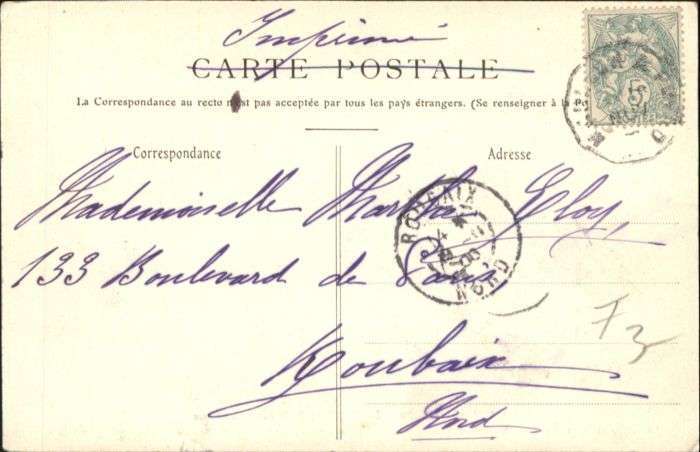 Imprimé
CARTE POSTALE
La Correspondance au recto n'est pas acceptée par tous les pays étrangers. (Se renseigner à la
Correspondance
Adresse
Mademoiselle Martha Eloy
133 Boulevard de Paris
Roubaix
Nord
ROUBAIX
NORD
5
73